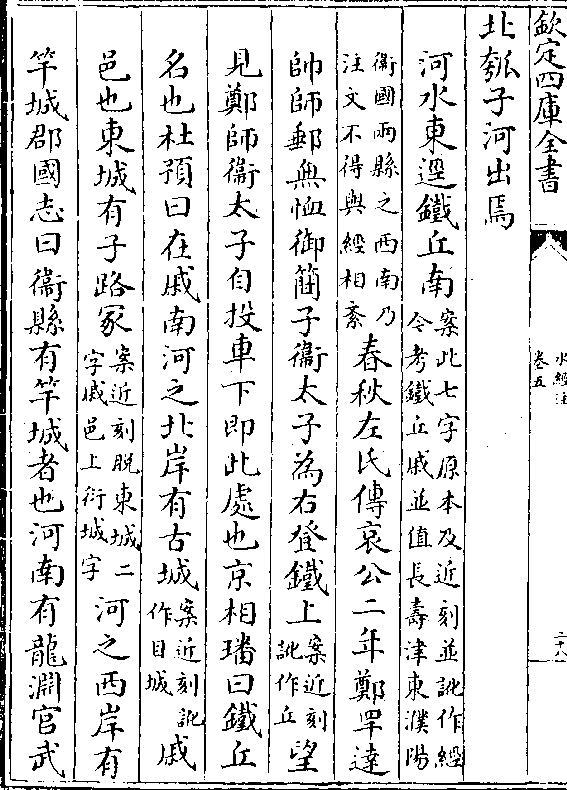 欽定四庫全書
水經注
卷五
二十八
北瓠子河出焉
河水東逕鐵丘南案此七字原本及近刻並訛作經今考鐵丘戚並值長壽津東濮陽
衞國兩縣之西南乃注文不得與經相紊春秋左氏傳哀公二年鄭罕達
帥師郵無恤御簡子衞太子為右登鐵上案近刻訛作丘望
見鄭師衞太子自投車下即此處也京相璠曰鐵丘
名也杜預曰在戚南河之北岸有古城案近刻訛作目城戚
邑也東城有子路冢案近刻脱東城二字戚邑上衍城字河之西岸有
竿城郡國志曰衞縣有竿城者也河南有龍淵宫武